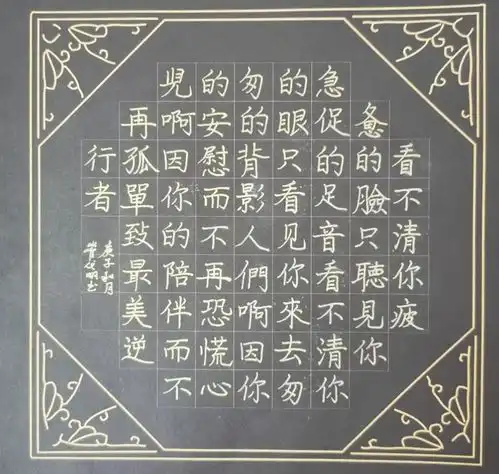 看不清你疲
惫的臉只聽見你
急促的足音看不清你
的眼只看见你來去匆
匆的背影人們啊因你
的安慰而不再恐慌心
兒啊因你的陪伴而不
再孤單致最美逆
行者
庚子和月